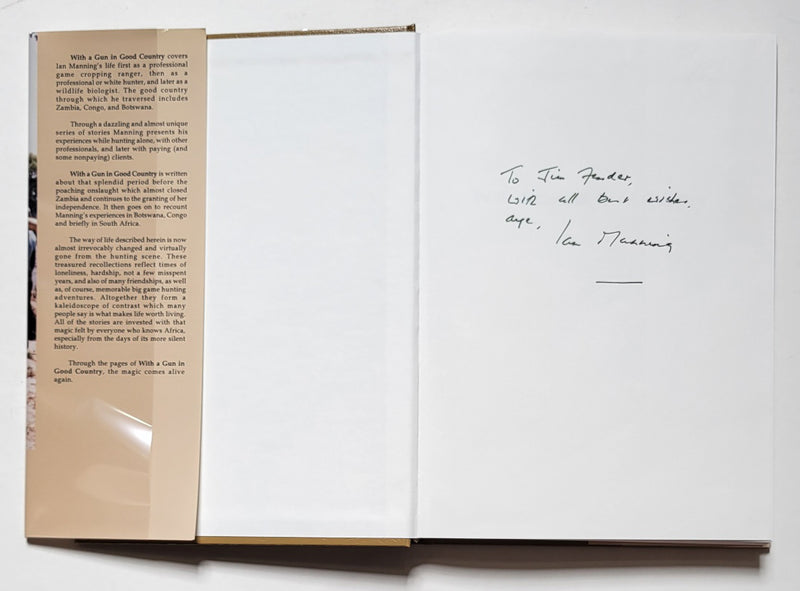 With a Gun in Good Country covers
Ian Manning's life first as a professional
game cropping ranger, then as a
professional or white hunter, and later as a
wildlife biologist. The good country
through which he traversed includes
Zambia, Congo, and Botswana.
Through a dazzling and almost unique
series of stories Manning presents his
experiences while hunting alone, with other
professionals, and later with paying (and
some nonpaying) clients.
With a Gun in Good Country is written
about that splendid period before the
poaching onslaught which almost closed
Zambia and continues to the granting of her
independence. It then goes on to recount
Manning's experiences in Botswana, Congo
and briefly in South Africa.
The way of life described herein is now
almost irrevocably changed and virtually
gone from the hunting scene. These
treasured recollections reflect times of
loneliness, hardship, not a few misspent
years, and also of many friendships, as well
as, of course, memorable big game hunting
adventures. Altogether they form a
kaleidoscope of contrast which many
people say is what makes life worth living.
All of the stories are invested with that
magic felt by everyone who knows Africa,
especially from the days of its more silent
history.
Through the pages of With a Gun in
Good Country, the magic comes alive
again.
To Jim
with all best wishes.
aye,
Ian Manning